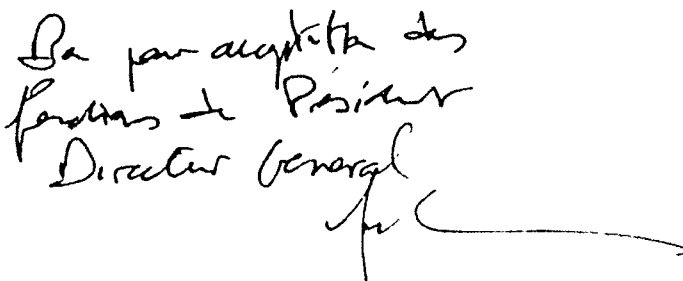 Bon pour acceptation des
fonctions de Président
Directeur General